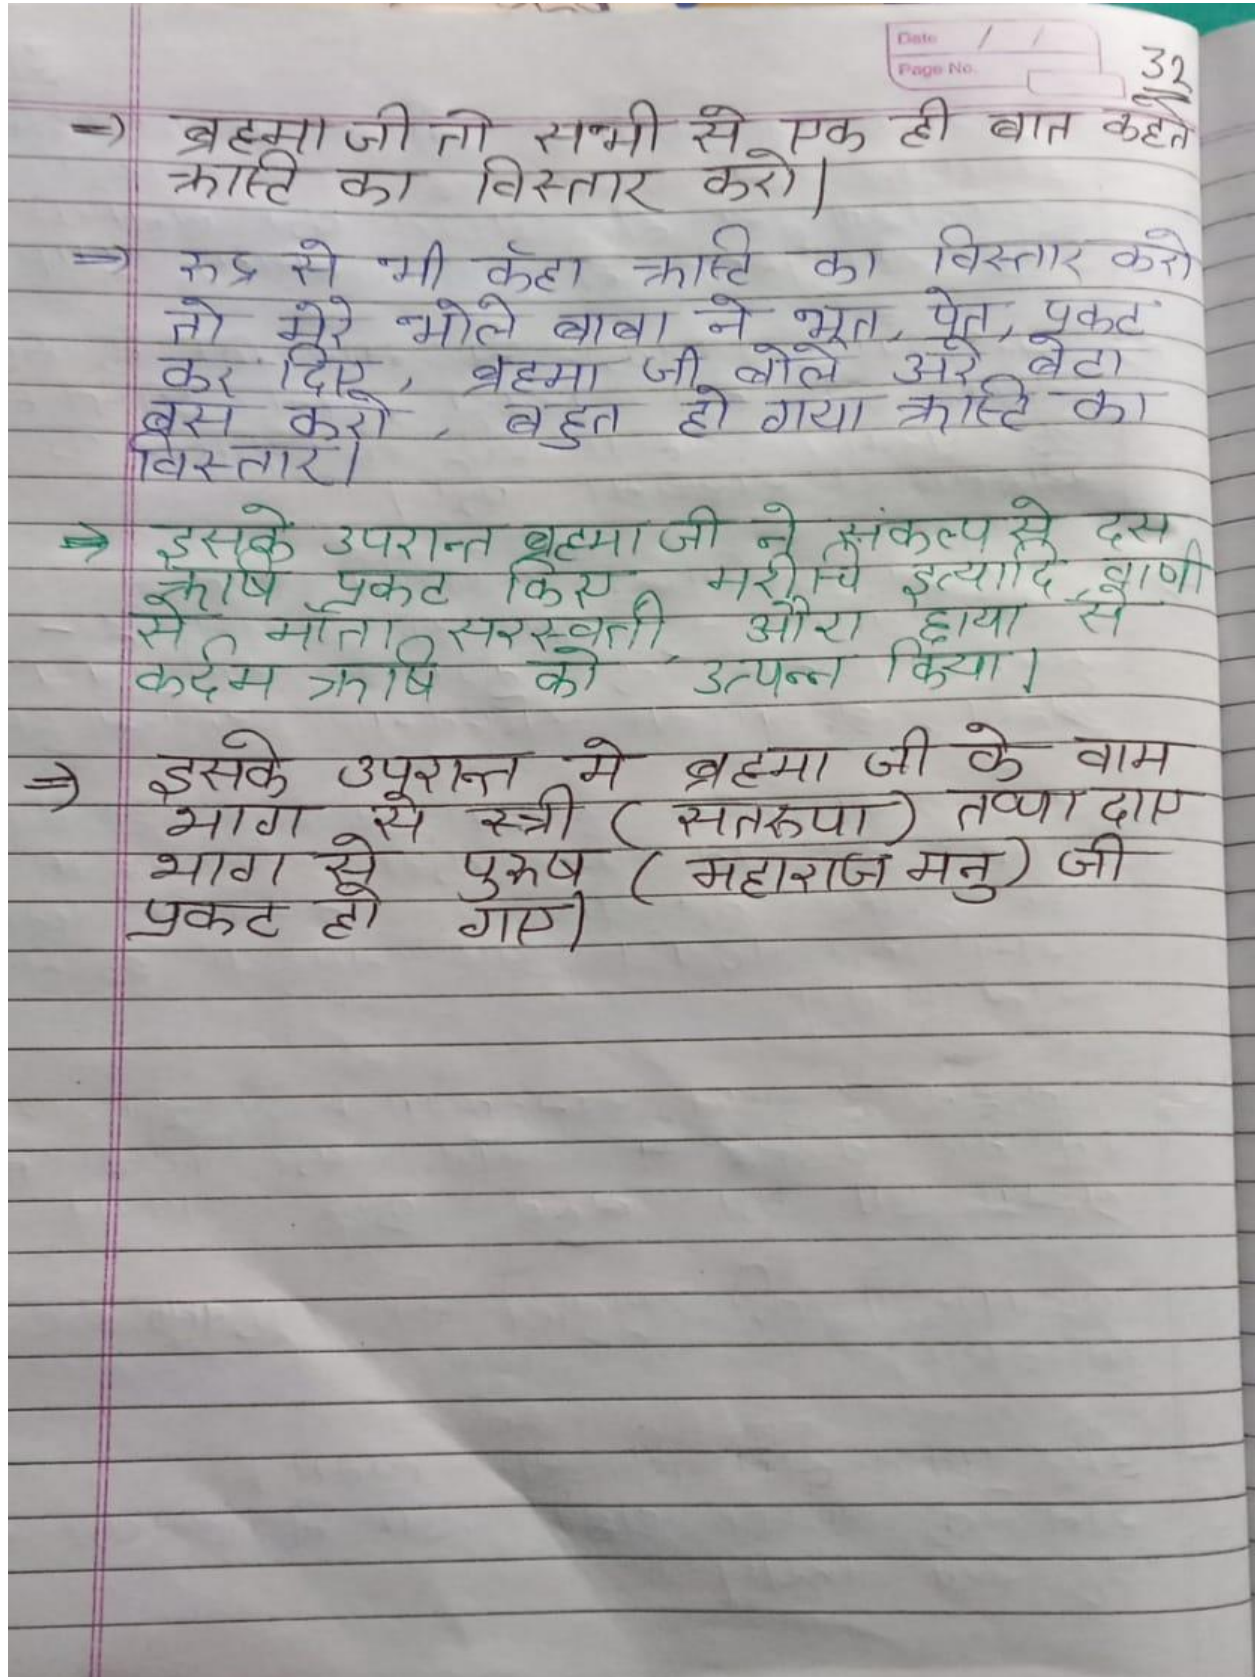 Date / /
Page No.
32
→ ब्रहमा जी तो सभी से एक ही बात कहते
क्राष्टि का विस्तार करो।
⇒ रुद्र से भी कॅहा क्राष्टि का विस्तार करो
तो मेरे भोले बाबा ने भूत, प्रेत, प्रकट
कर दिए, ब्रहमा जी बोले अरे बेटा
बस करो, बहुत हो गया क्राष्टि का
विस्तार।
⇒ इसके उपरान्त ब्रहमा जी ने संकल्प से दस
ऋषि प्रकट किए मरीचि इत्यादि, वाणी
से माँता सरस्वती, और छाया से
कर्दम ऋषि को उत्पन्न किया।
⇒ इसके उपरान्त मे ब्रहमा जी के वाम
भाग से स्त्री (सतरुपा) तथा दाए
भाग से पुरुष (महाराज मनु) जी
प्रकट हो गए।